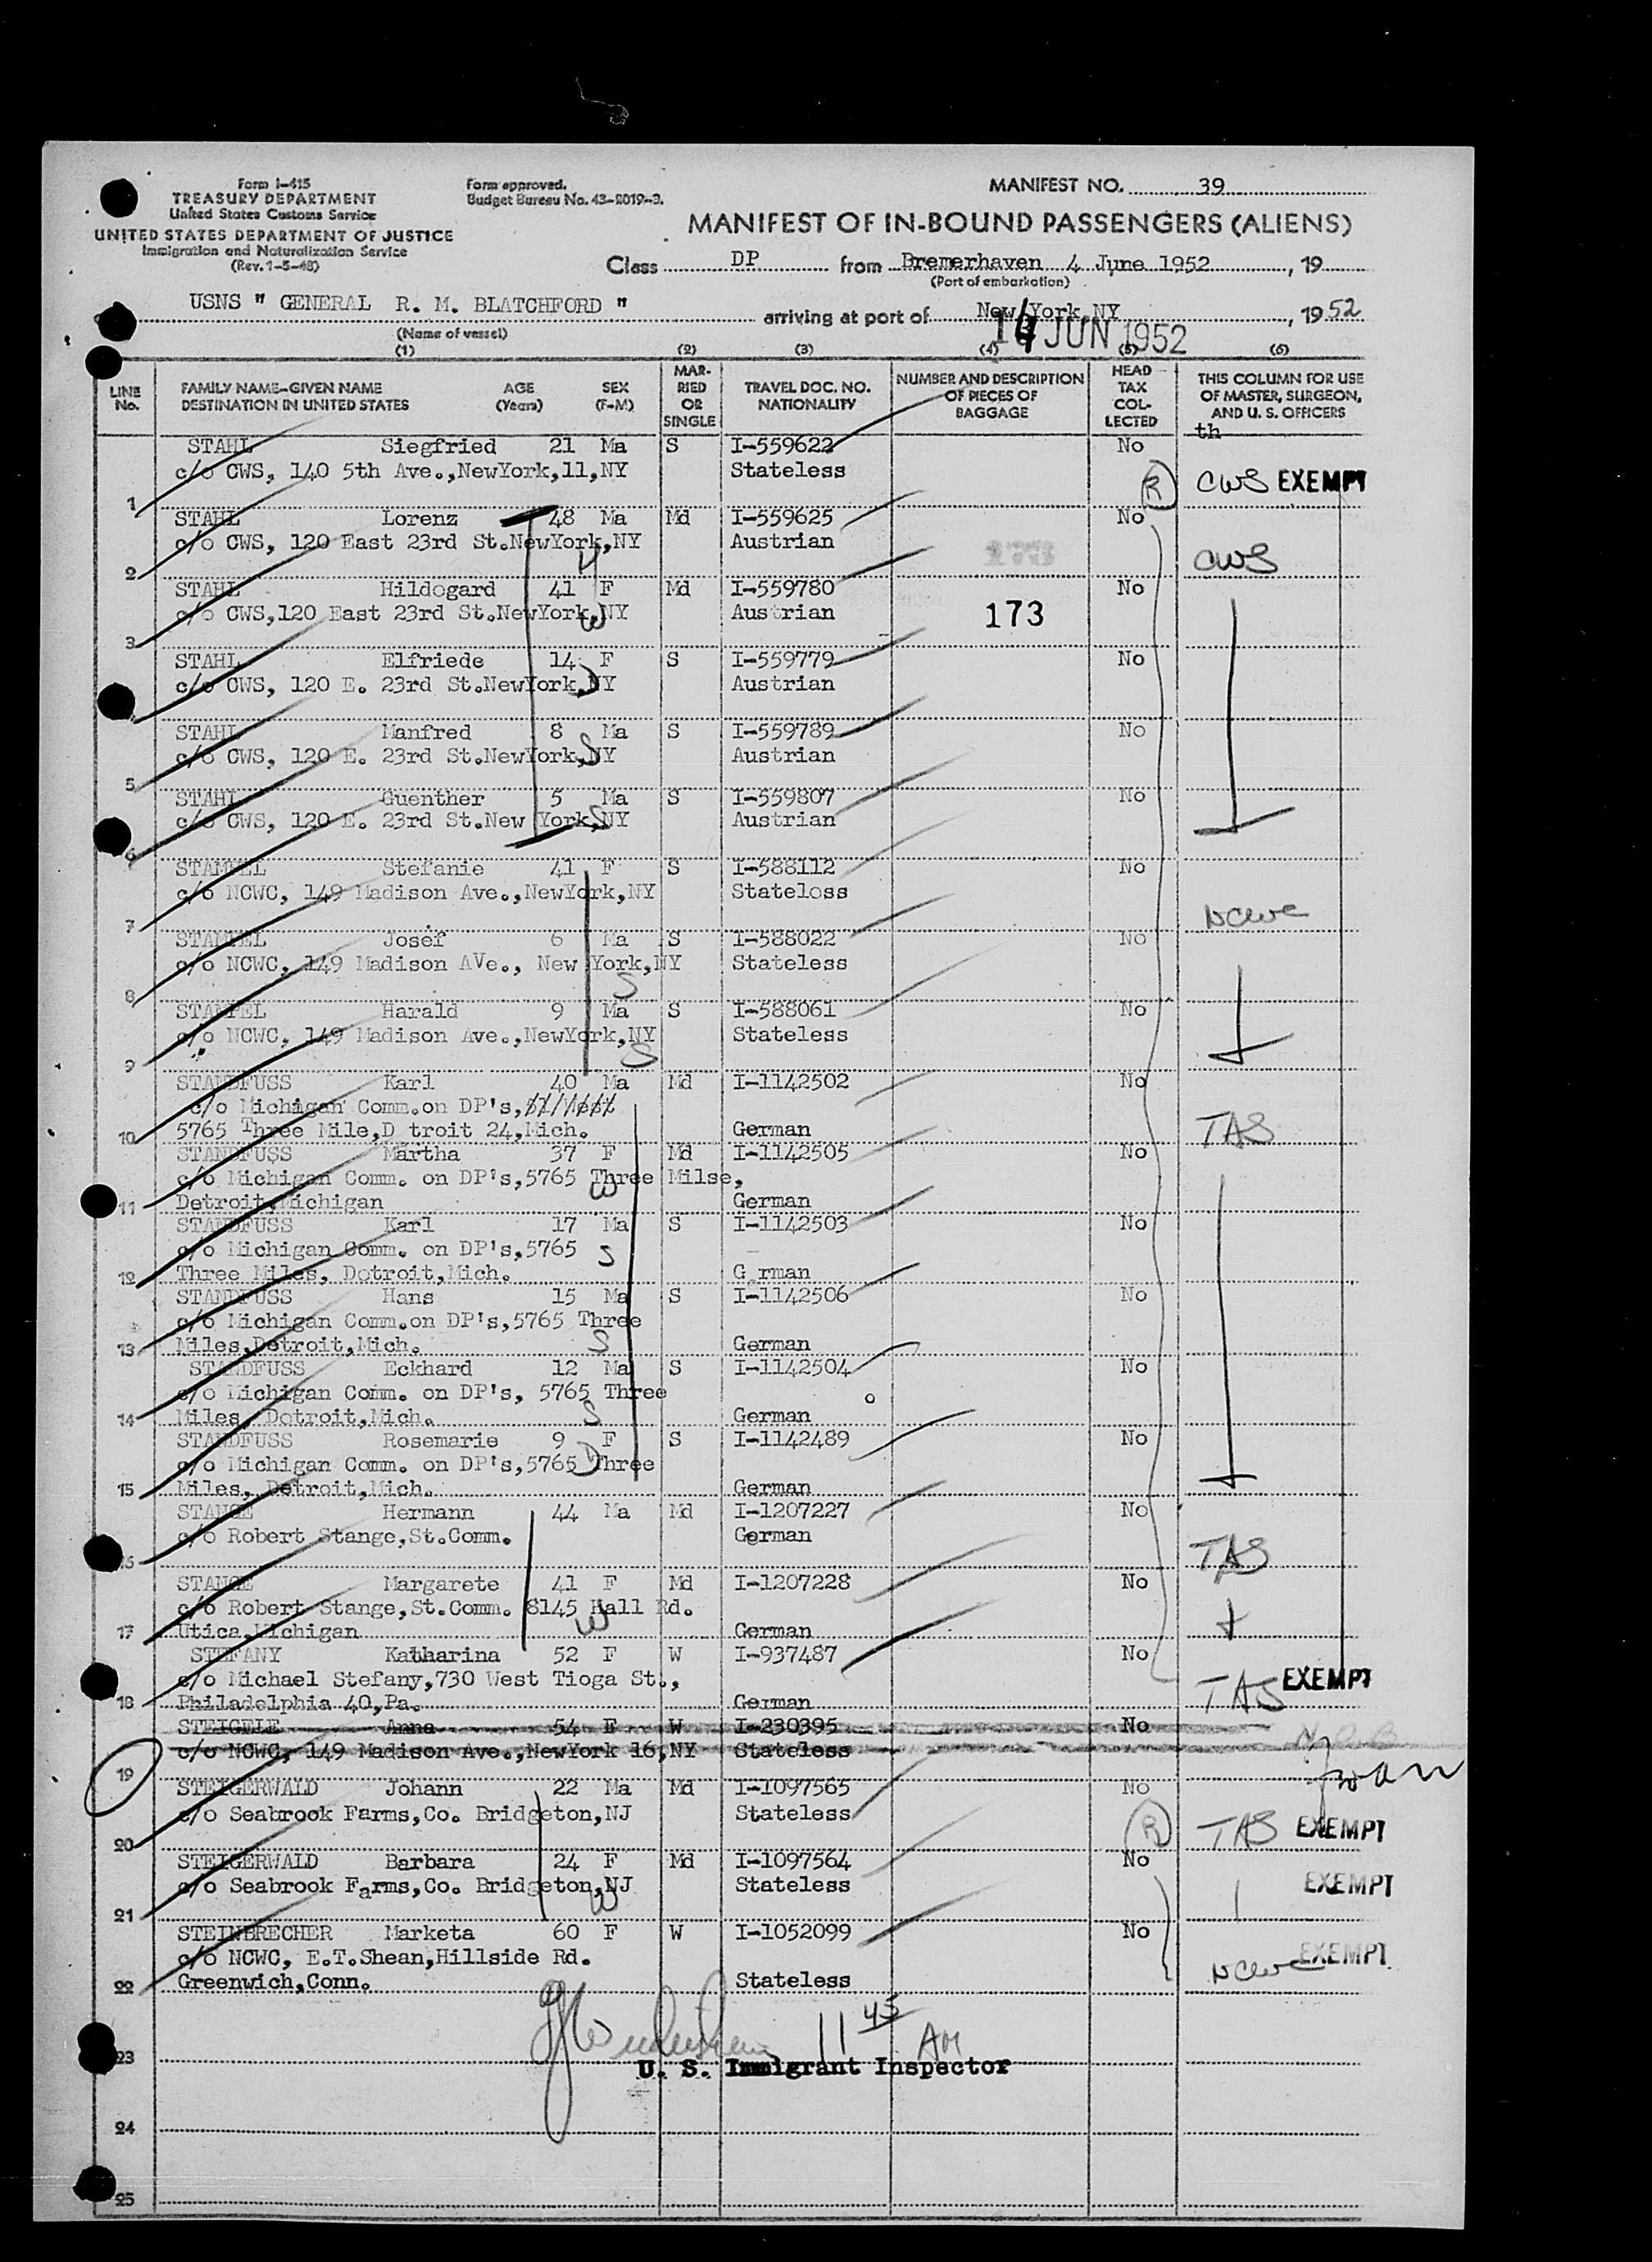 Form I-415
TREASURY DEPARTMENT
United States Customs Service
UNITED STATES DEPARTMENT OF JUSTICE
Immigration and Naturalization Service
(Rev. 1-5-48)
Form approved.
Budget Bureau No. 43-R019-3.
MANIFEST NO. 39
MANIFEST OF IN-BOUND PASSENGERS (ALIENS)
Class DP from Bremerhaven 4 June 1952, 19
(Port of embarkation)
USNS " GENERAL R. M. BLATCHFORD " arriving at port of New York,NY, 1952
(Name of vessel)
JUN 1952
(1) (2) (3) (4) (5) (6)
LINE No. FAMILY NAME-GIVEN NAME DESTINATION IN UNITED STATES AGE (Years) SEX (F-M) MAR-RIED OR SINGLE TRAVEL DOC. NO. NATIONALITY NUMBER AND DESCRIPTION OF PIECES OF BAGGAGE HEAD TAX COL-LECTED THIS COLUMN FOR USE OF MASTER, SURGEON, AND U. S. OFFICERS
th
STAHL Siegfried 21 Ma S I-559622 No
c/o CWS, 140 5th Ave.,NewYork,11,NY Stateless R CWS EXEMPT
1
STAHL Lorenz 48 Ma Md I-559625 No
c/o CWS, 120 East 23rd St.NewYork,NY Austrian CWS
2
STAHL Hildogard 41 F Md I-559780 No
c/o CWS,120 East 23rd St.NewYork,NY Austrian 173
W
3
STAHL Elfriede 14 F S I-559779 No
c/o CWS, 120 E. 23rd St.NewYork,NY Austrian
D
STAHL Manfred 8 Ma S I-559789 No
c/o CWS, 120 E. 23rd St.NewYork,NY Austrian
S
5
STAHL Guenther 5 Ma S I-559807 No
c/o CWS, 120 E. 23rd St.New York,NY Austrian
S
6
STAMPEL Stefanie 41 F S I-588112 No
c/o NCWC, 149 Madison Ave.,NewYork,NY Stateloss
NCWC
7
STAMPEL Josef 6 Ma S I-588022 No
c/o NCWC, 149 Madison AVe., New York,NY Stateless
S
8
STAMPEL Harald 9 Ma S I-588061 No
c/o NCWC, 149 Madison Ave.,NewYork,NY Stateless
S
9
STANDFUSS Karl 40 Ma Md I-1142502 No
c/o Michigan Comm.on DP's,
5765 Three Mile,D troit 24,Mich. German TAS
10
STANDFUSS Martha 37 F Md I-1142505 No
c/o Michigan Comm. on DP's,5765 Three Milse,
W
Detroit,Michigan German
11
STANDFUSS Karl 17 Ma S I-1142503 No
c/o Michigan Comm. on DP's,5765
S
Three Miles, Dotroit,Mich. G rman
12
STANDFUSS Hans 15 Ma S I-1142506 No
c/o Michigan Comm.on DP's,5765 Three
Miles,Detroit,Mich. S German
13
STANDFUSS Eckhard 12 Ma S I-1142504 No
c/o Michigan Comm. on DP's, 5765 Three
Miles, Dotroit,Mich. S German
14
STANDFUSS Rosemarie 9 F S I-1142489 No
c/o Michigan Comm. on DP's,5765 Three
D
Miles, Detroit,Mich. German
15
STANGE Hermann 44 Ma Md I-1207227 No
c/o Robert Stange,St.Comm. German
TAS
16
STANGE Margarete 41 F Md I-1207228 No
c/o Robert Stange,St.Comm. 8145 Hall Rd.
W
Utica,Michigan German
17
STEFANY Katharina 52 F W I-937487 No
c/o Michael Stefany,730 West Tioga St.,
Philadelphia 40,Pa. German TAS EXEMPT
18
STEIGELE Anna 54 F W I-230395 No
c/o NCWC, 149 Madison Ave.,NewYork 16,NY Stateless
19
STEIGERWALD Johann 22 Ma Md I-1097565 No
c/o Seabrook Farms,Co. Bridgeton,NJ Stateless
R TAS EXEMPT
20
STEIGERWALD Barbara 24 F Md I-1097564 No
c/o Seabrook Farms,Co. Bridgeton,NJ Stateless EXEMPT
W
21
STEINBRECHER Marketa 60 F W I-1052099 No
c/o NCWC, E.T.Shean,Hillside Rd.
EXEMPT
Greenwich,Conn. Stateless NCWC
22
11 45 AM
23
U. S. Immigrant Inspector
24
25